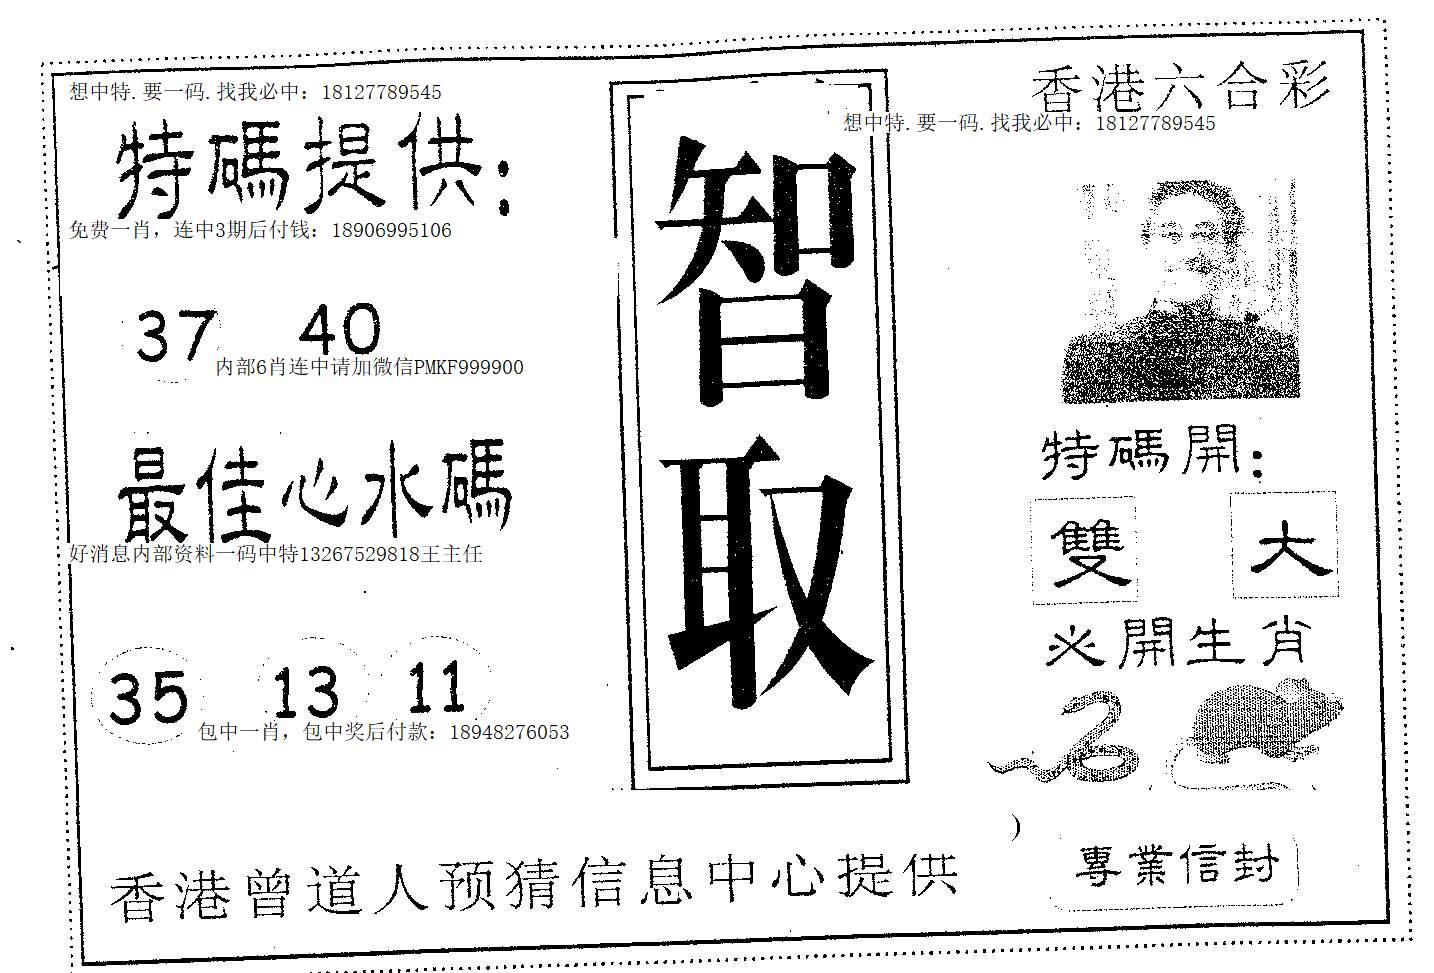 想中特.要一码.找我必中：18127789545
特碼提供：
免费一肖，连中3期后付钱：18906995106
37 40
内部6肖连中请加微信PMKF999900
最佳心水碼
好消息内部资料一码中特13267529818王主任
35 13 11
包中一肖，包中奖后付款：18948276053
智
取
香港六合彩
想中特.要一码.找我必中：18127789545
特碼開：
雙 大
必開生肖
專業信封
香港曾道人预猜信息中心提供